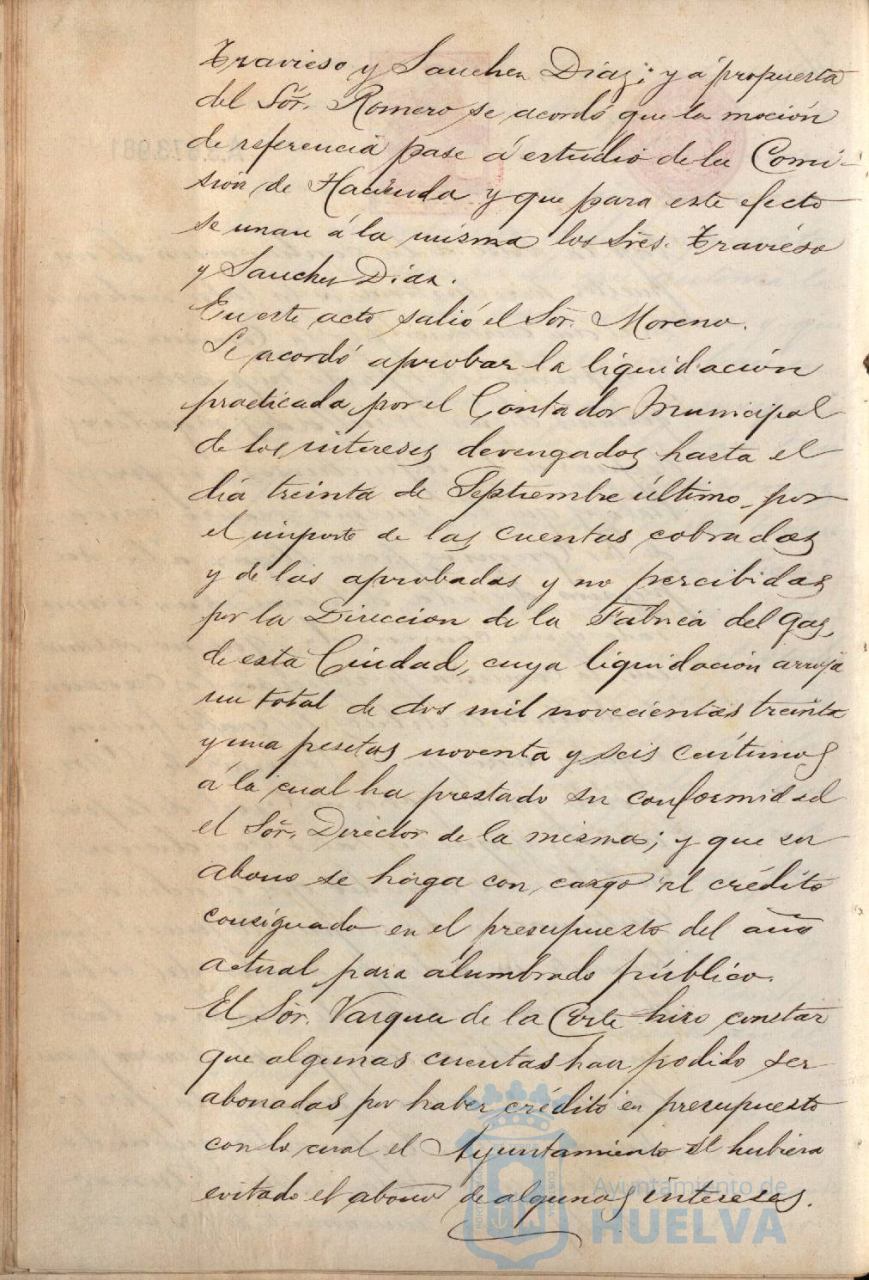 Travieso y Sanchez Diaz; y á propuesta
del Sór. Romero se acordó que la moción
de referencia pase á estudio de la Comi-
sión de Hacienda y que para este efecto
se unan á la misma los Sres. Travieso
y Sanchez Diaz.
En este acto salió el Sor. Moreno.
Se acordó aprobar la liquidación
practicada por el Contador Municipal
de los intereses devengados hasta el
dia treinta de Septiembre último, por
el importe de las cuentas cobradas
y de las aprobadas y no percibidas
por la Direccion de la Fabrica del gas,
de esta Ciudad, cuya liquidación arroja
un total de dos mil novecientas treinta
y una pesetas noventa y seis céntimos
á la cual ha prestado su conformidad
el Sor. Director de la misma; y que su
abono se haga con cargo al crédito
consignado en el presupuesto del año
actual para alumbrado público.
El Sór. Vazquez de la Corte hizo constar
que algunas cuentas han podido ser
abonadas por haber crédito en presupuesto
con lo cual el Ayuntamiento se hubiera
evitado el abono de algunos intereses.
Ayuntamiento de
HUELVA